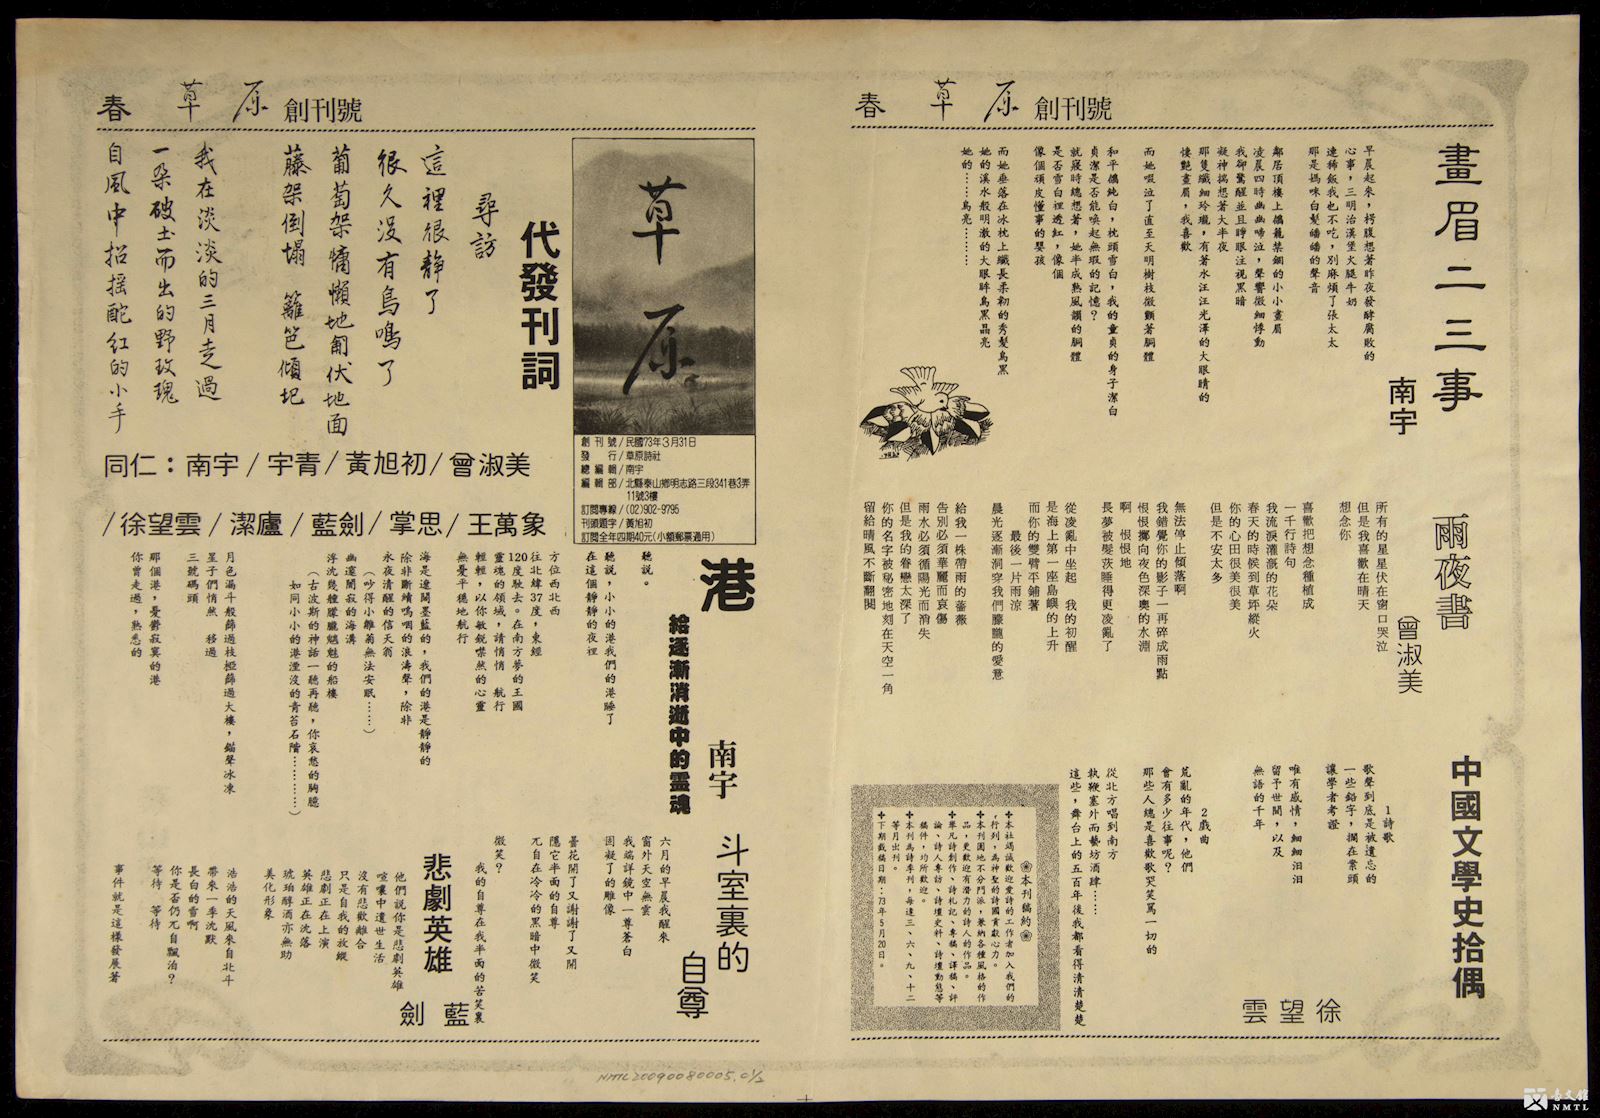 春 草 原 創刊號
畫眉二三事
南宇
早晨起來，枵腹想著昨夜發酵腐敗的
心事，三明治漢堡火腿牛奶
連稀飯我也不吃，別麻煩了張太太
那是媽咪白髮皤皤的聲音
鄰居頂樓上儒籠禁錮的小小畫眉
凌晨四時幽幽啼泣，聲響微細悸動
我卻驚醒並且睜眼注視黑暗
凝神揣想著大半夜
那隻纖細玲瓏，有著水汪汪光澤的大眼睛的
悽艷畫眉，我喜歡
而她啜泣了直至天明樹枝微顫著胴體
和平儒純白，枕頭雪白，我的童貞的身子潔白
貞潔是否能喚起無瑕的記憶？
就寢時總想著，她半成熟風韻的胴體
是否雪白裡透紅，像個
像個頑皮懂事的嬰孩
而她垂落在冰枕上纖長柔韌的秀髮烏黑
她的溪水般明澈的大眼眸烏黑晶亮
她的……烏亮……
雨夜書
曾淑美
所有的星星伏在窗口哭泣
但是我喜歡在晴天
想念你
喜歡把想念種植成
一千行詩句
我流淚灌溉的花朵
春天的時候到草坪縱火
你的心田很美很美
但是不安太多
無法停止傾落啊
我錯覺你的影子一再碎成雨點
恨恨擲向夜色深奧的水淵
啊　恨恨地
長夢被髮茨睡得更凌亂了
從凌亂中坐起　我的初醒
是海上第一座島嶼的上升
而你的雙臂平鋪著
最後一片雨涼
晨光逐漸洞穿我們朦朧的愛意
給我一株帶雨的薔薇
告別必須華麗而哀傷
雨水必須循陽光而消失
但是我的眷戀太深了
你的名字被秘密地刻在天空一角
留給晴風不斷翻閱
中國文學史拾偶
徐望雲
1詩歌
歌聲到底是被遺忘的
一些鉛字，擱在案頭
讓學者考證
唯有感情，細細汩汩
留予世間，以及
無語的千年
2戲曲
荒亂的年代，他們
會有多少往事呢？
那些人總是喜歡歌哭笑罵一切的
從北方唱到南方
執鞭塞外而藝坊酒肆……
這些，舞台上的五百年後我都看得清清楚楚
本刊稿約
本社竭誠歡迎愛詩的工作者加入我們的
行列，為神聖的詩國貢獻心力。
本刊園地不分門派，兼納各種風格的作
品，更歡迎有潛力的詩人的作品。
舉凡詩創作、詩札記、專稿、譯稿、評
論、詩人專訪、詩壇史料、詩壇動態等
稿件，均所歡迎。
本刊為詩季刊，每逢三、六、九、十二
等月出刊。
下期截稿日期：73年5月20日。
春 草 原 創刊號
草原
創 刊 號／民國73年３月31日
發　　行／草原詩社
總 編 輯／南宇
編 輯 部／北縣泰山鄉明志路三段341巷3弄
11號3樓
訂閱專線／(02)902-9795
刊頭題字／黃旭初
訂閱全年四期40元(小額郵票通用)
代發刊詞
尋訪
這裡很靜了
很久沒有鳥鳴了
葡萄架慵懶地匍伏地面
藤架倒塌　籬笆傾圮
我在淡淡的三月走過
一朵破土而出的野玫瑰
自風中招搖酡紅的小手
同仁：南宇／宇青／黃旭初／曾淑美
／徐望雲／潔廬／藍劍／掌思／王萬象
港
給逐漸消逝中的靈魂
南宇
聽說。
聽說，小小的港我們的港睡了
在這個靜靜的夜裡
方位西北西
往北緯37度，東經
120度駛去。在南方夢的王國
靈魂的領域，請悄悄　航行
輕輕，以你敏銳噤然的心靈
無憂平穩地航行
海是遼闊墨藍的，我們的港是靜靜的
除非斷續嗚咽的浪濤聲，除非
永夜清醒的信天翁
（吵得小雛菊無法安眠……）
幽邃闃寂的海溝
浮沈幾幢朦朧魑魅的船樓
（古波斯的神話一聽再聽，你哀愁的胸臆
如同小小的港湮沒的青苔石階…………）
月色漏斗般篩過枝椏篩過大樓，錨聲冰凍
星子們悄然　移過
三號碼頭
那個港，憂鬱寂寞的港
你曾走過，熟悉的
斗室裏的
自尊
六月的早晨我醒來
窗外天空無雲
我端詳鏡中一尊蒼白
困凝了的雕像
曇花開了又謝謝了又開
隱它半面的自尊
兀自在冷冷的黑暗中微笑
微笑？
我的自尊在我半面的苦笑裏
悲劇英雄
藍劍
他們說你是悲劇英雄
喧嚷中遺世生活
沒有悲歡離合
只是自我的放縱
悲劇正在上演
英雄正在沈落
琥珀醇酒亦無助
美化形象
浩浩的天風來自北斗
帶來一季沈默
長白的雪啊
你是否仍兀自飄泊？
等待　等待
事件就是這樣發展著
NMTL20090080005.01/2
臺文館
NMTL